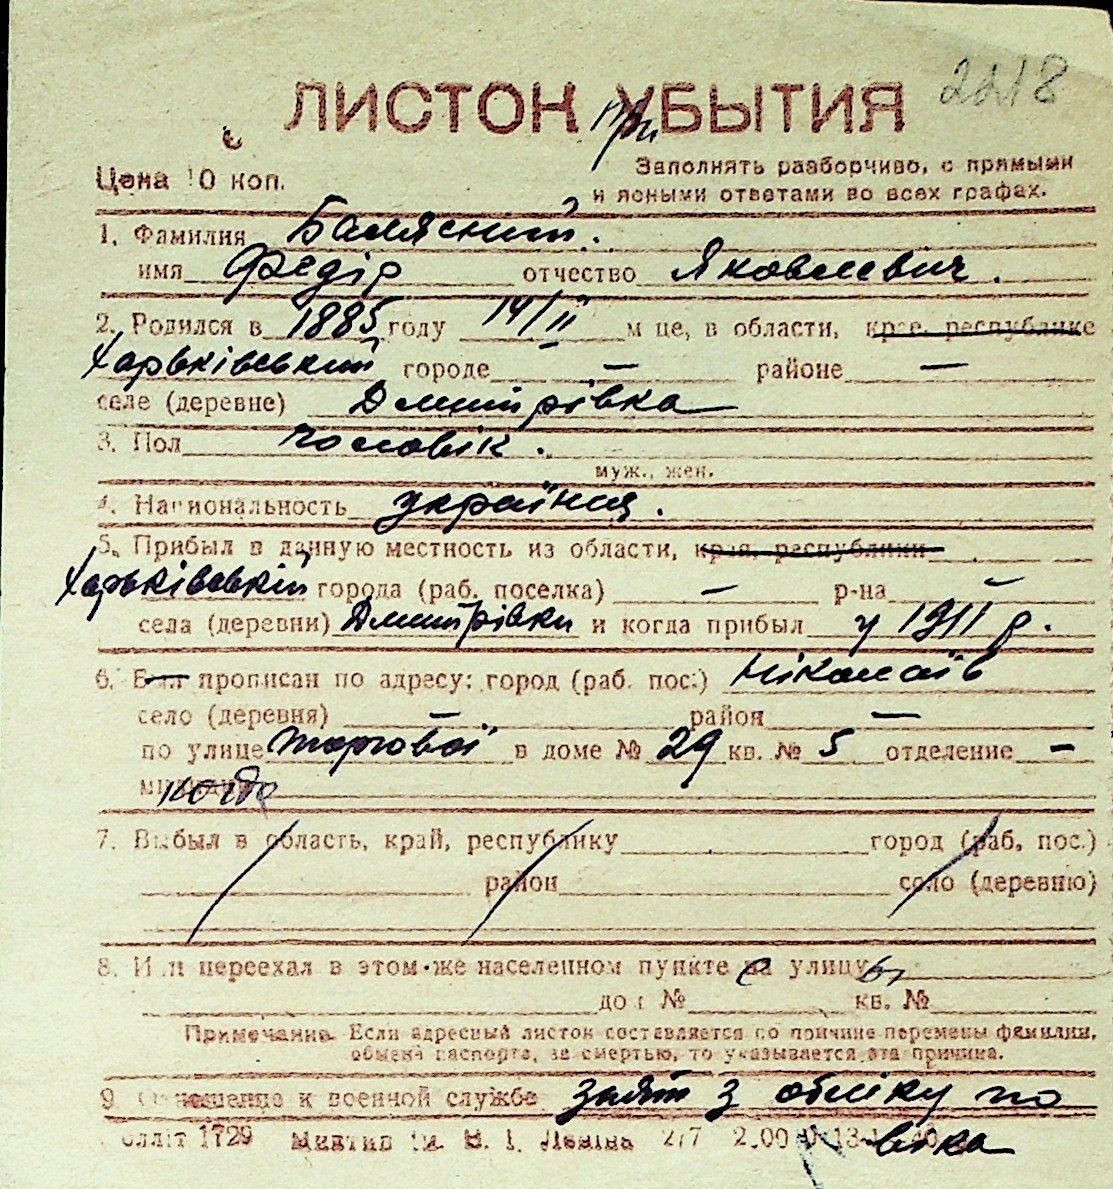 2218
ЛИСТОК УБЫТИЯ
Цена 10 коп.
Заполнять разборчиво, с прямыми
и ясными ответами во всех графах.
1. Фамилия Балясний.
имя Федір отчество Яковлевич.
2. Родился в 1885 году 14/II м це, в области, крае, республике
Харьківський городе — районе —
селе (деревне) Дмитрівка
3. Пол чоловік.
муж., жен.
4. Национальность українец.
5. Прибыл в данную местность из области, края, республики
Харьківський города (раб. поселка) — р-на —
села (деревни) Дмитрівки и когда прибыл у 1911 р.
6. Был прописан по адресу: город (раб. пос.) Ніколаїв
село (деревня) — район —
по улице Торгової в доме № 29 кв. № 5 отделение —
милиции
7. Выбыл в область, край, республику город (раб. пос.)
район село (деревню)
8. Или переехал в этом же населенном пункте на улицу
дом № кв. №
Примечание. Если адресный листок составляется по причине перемены фамилии,
обмена паспорта, за смертью, то указывается эта причина.
9. Отношение к военной службе знят з обліку по
Обллiт 1729 ім. В. І. Леніна 277
віка